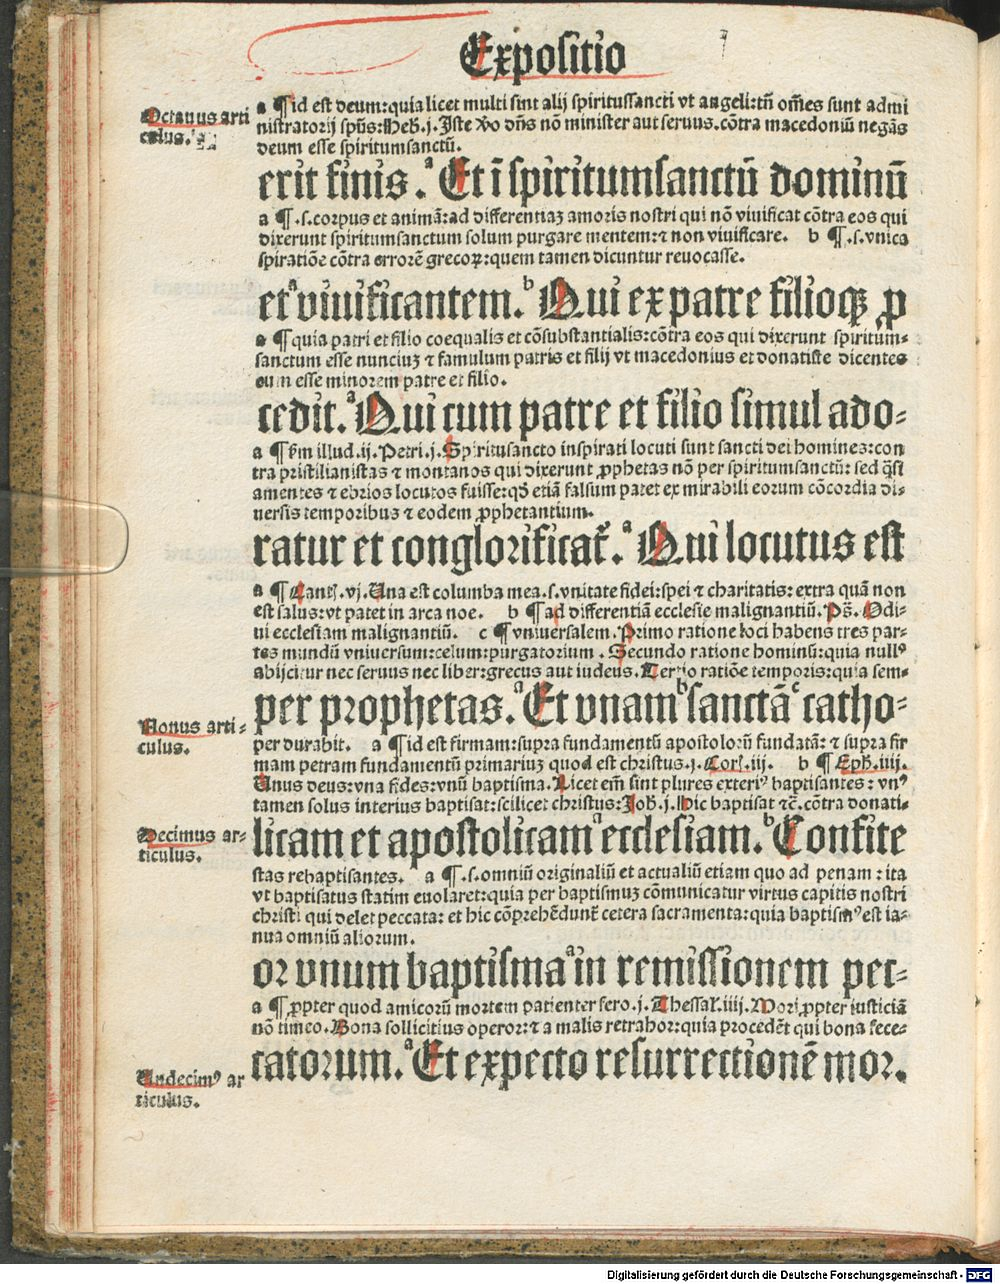 Expositio
Octauus arti
culus.
a ¶ id est deum: quia licet multi sint alij spiritussancti vt angeli: tñ oṁes sunt admi
nistratorij spũs: Heb̃. j. Iste ṽo dñs nõ minister aut seruus. cõtra macedoniũ negãs
deum esse spiritumsanctũ.
erit finis. ᵃ Et ĩ spiritumsanctũ dominũ
a ¶ .s. corpus et animã: ad differentiaꝫ amoris nostri qui nõ viuificat cõtra eos qui
dixerunt spiritumsanctum solum purgare mentem: ⁊ non viuificare. b ¶ .s. vnica
spiratiõe cõtra errorẽ grecoꝝ: quem tamen dicuntur reuocasse.
etᵃ viuificantem. ᵇ Qui ex patre filioqꝫ ꝓ
a ¶ quia patri et filio coequalis et cõsubstantialis: cõtra eos qui dixerunt spiritum-
sanctum esse nunciuꝫ ⁊ famulum patris et filij vt macedonius et donatiste dicentes
eum esse minorem patre et filio.
cedit. ᵃ Qui cum patre et filio simul ado-
a ¶ ẜm illud .ij. Petri .j. Spiritusancto inspirati locuti sunt sancti dei homines: con
tra pristilianistas ⁊ montanos qui dixerunt ꝓphetas nõ per spiritumsanctũ: sed q̃si
amentes ⁊ ebrios locutos fuisse: qđ etiã falsum patet ex mirabili eorum cõcordia di-
uersis temporibus ⁊ eodem ꝓphetantium.
ratur et conglorificat̃. ᵃ Qui locutus est
a ¶ Cantĩ. vj. Una est columba mea .s. vnitate fidei: spei ⁊ charitatis: extra quã non
est salus: vt patet in arca noe. b ¶ ad differentiã ecclesie malignantiũ. Ps̃. Odi-
ui ecclesiam malignantiũ. c ¶ vniuersalem. Primo ratione loci habens tres par-
tes mundũ vniuersum: celum: purgatorium. Secundo ratione hominũ: quia nullꝰ
abijcitur nec seruus nec liber: grecus aut iudeus. Tertio ratiõe temporis: quia sem-
per prophetas. ᵃ Et vnam ᵇ sanctã ᶜ catho-
Nonus arti-
culus.
per durabit. a ¶ id est firmam: supra fundamentũ apostoloꝝ fundatã: ⁊ supra fir
mam petram fundamentũ primariuꝫ quod est christus .j. Corĩ. iij. b ¶ Eph̃. iiij.
Unus deus: vna fides: vnũ baptisma. Licet em̃ sint plures exteriꝰ baptisantes: vnꝰ
tamen solus interius baptisat: scilicet christus: Joh̃. j. Hic baptisat ⁊c̃. cõtra donati-
licam et apostolicam ᵃ ecclesiam. ᵇ Confite
Decimus ar-
ticulus.
stas rebaptisantes. a ¶ .s. omniũ originaliũ et actualiũ etiam quo ad penam: ita
vt baptisatus statim euolaret: quia per baptismuꝫ cõmunicatur virtus capitis nostri
christi qui delet peccata: et hic cõprehẽdunt̃ cetera sacramenta: quia baptismꝰ est ia-
nua omniũ aliorum.
or vnum baptisma ᵃ in remissionem pec-
a ¶ ꝓpter quod amicorũ mortem patienter fero .j. Thessal̃. iiij. Mori ꝓpter iusticiã
nõ timeo. Bona sollicitius operor: ⁊ a malis retrahor: quia procedẽt qui bona fece-
catorum. ᵃ Et expecto resurrectionẽ mor.
Undecimꝰ ar
ticulus.
Digitalisierung gefördert durch die Deutsche Forschungsgemeinschaft - DFG